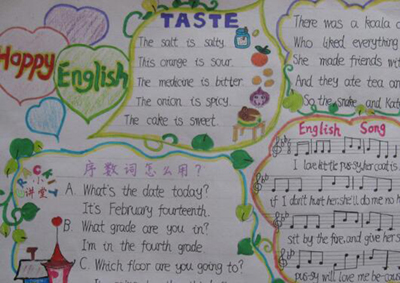 Happy
English
TASTE
The salt is salty.
This orange is sour.
The medicine is bitter.
The onion is spicy.
The cake is sweet.
There was a koala
Who liked everything
She made friends wit
And they ate tea an
So the snake and Kat
序数词怎么用？
小
讲堂
A. What's the date today?
It's February fourteenth.
B. What grade are you in?
I'm in the fourth grade
C. Which floor are you going to?
English Song
I love little pussy,her coat is
if I don't hurt her,she'll do me no h
sit by the fire,and give her s
pus-sy will love me be-cous